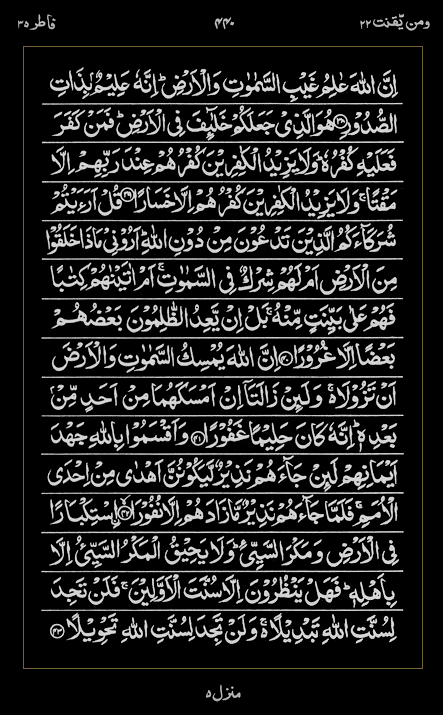 ومن یقنت ۲۲
۴۴۰
فاطر ۳۵
اِنَّ اللّٰهَ عٰلِمُ غَيْبِ السَّمٰوٰتِ وَالْاَرْضِ ؕ اِنَّهٗ عَلِيْمٌۢ بِذَاتِ
الصُّدُوْرِ ﴿۳۸﴾ هُوَ الَّذِيْ جَعَلَكُمْ خَلٰٓئِفَ فِي الْاَرْضِ ؕ فَمَنْ كَفَرَ
فَعَلَيْهِ كُفْرُهٗ ؕ وَلَا يَزِيْدُ الْكٰفِرِيْنَ كُفْرُهُمْ عِنْدَ رَبِّهِمْ اِلَّا
مَقْتًا ۚ وَلَا يَزِيْدُ الْكٰفِرِيْنَ كُفْرُهُمْ اِلَّا خَسَارًا ﴿۳۹﴾ قُلْ اَرَءَيْتُمْ
شُرَكَآءَكُمُ الَّذِيْنَ تَدْعُوْنَ مِنْ دُوْنِ اللّٰهِ ؕ اَرُوْنِيْ مَاذَا خَلَقُوْا
مِنَ الْاَرْضِ اَمْ لَهُمْ شِرْكٌ فِي السَّمٰوٰتِ ۚ اَمْ اٰتَيْنٰهُمْ كِتٰبًا
فَهُمْ عَلٰى بَيِّنَتٍ مِّنْهُ ۚ بَلْ اِنْ يَّعِدُ الظّٰلِمُوْنَ بَعْضُهُمْ
بَعْضًا اِلَّا غُرُوْرًا ﴿۴۰﴾ اِنَّ اللّٰهَ يُمْسِكُ السَّمٰوٰتِ وَالْاَرْضَ
اَنْ تَزُوْلَا ۚ وَلَئِنْ زَالَتَاۤ اِنْ اَمْسَكَهُمَا مِنْ اَحَدٍ مِّنْۢ
بَعْدِهٖ ؕ اِنَّهٗ كَانَ حَلِيْمًا غَفُوْرًا ﴿۴۱﴾ وَاَقْسَمُوْا بِاللّٰهِ جَهْدَ
اَيْمَانِهِمْ لَئِنْ جَآءَهُمْ نَذِيْرٌ لَّيَكُوْنُنَّ اَهْدٰى مِنْ اِحْدَى
الْاُمَمِ ۚ فَلَمَّا جَآءَهُمْ نَذِيْرٌ مَّا زَادَهُمْ اِلَّا نُفُوْرًا ﴿۴۲﴾ اِۨسْتِكْبَارًا
فِي الْاَرْضِ وَمَكْرَ السَّيِّئِ ؕ وَلَا يَحِيْقُ الْمَكْرُ السَّيِّئُ اِلَّا
بِاَهْلِهٖ ؕ فَهَلْ يَنْظُرُوْنَ اِلَّا سُنَّتَ الْاَوَّلِيْنَ ۚ فَلَنْ تَجِدَ
لِسُنَّتِ اللّٰهِ تَبْدِيْلًا ۚ وَلَنْ تَجِدَ لِسُنَّتِ اللّٰهِ تَحْوِيْلًا ﴿۴۳﴾
منزل ۵